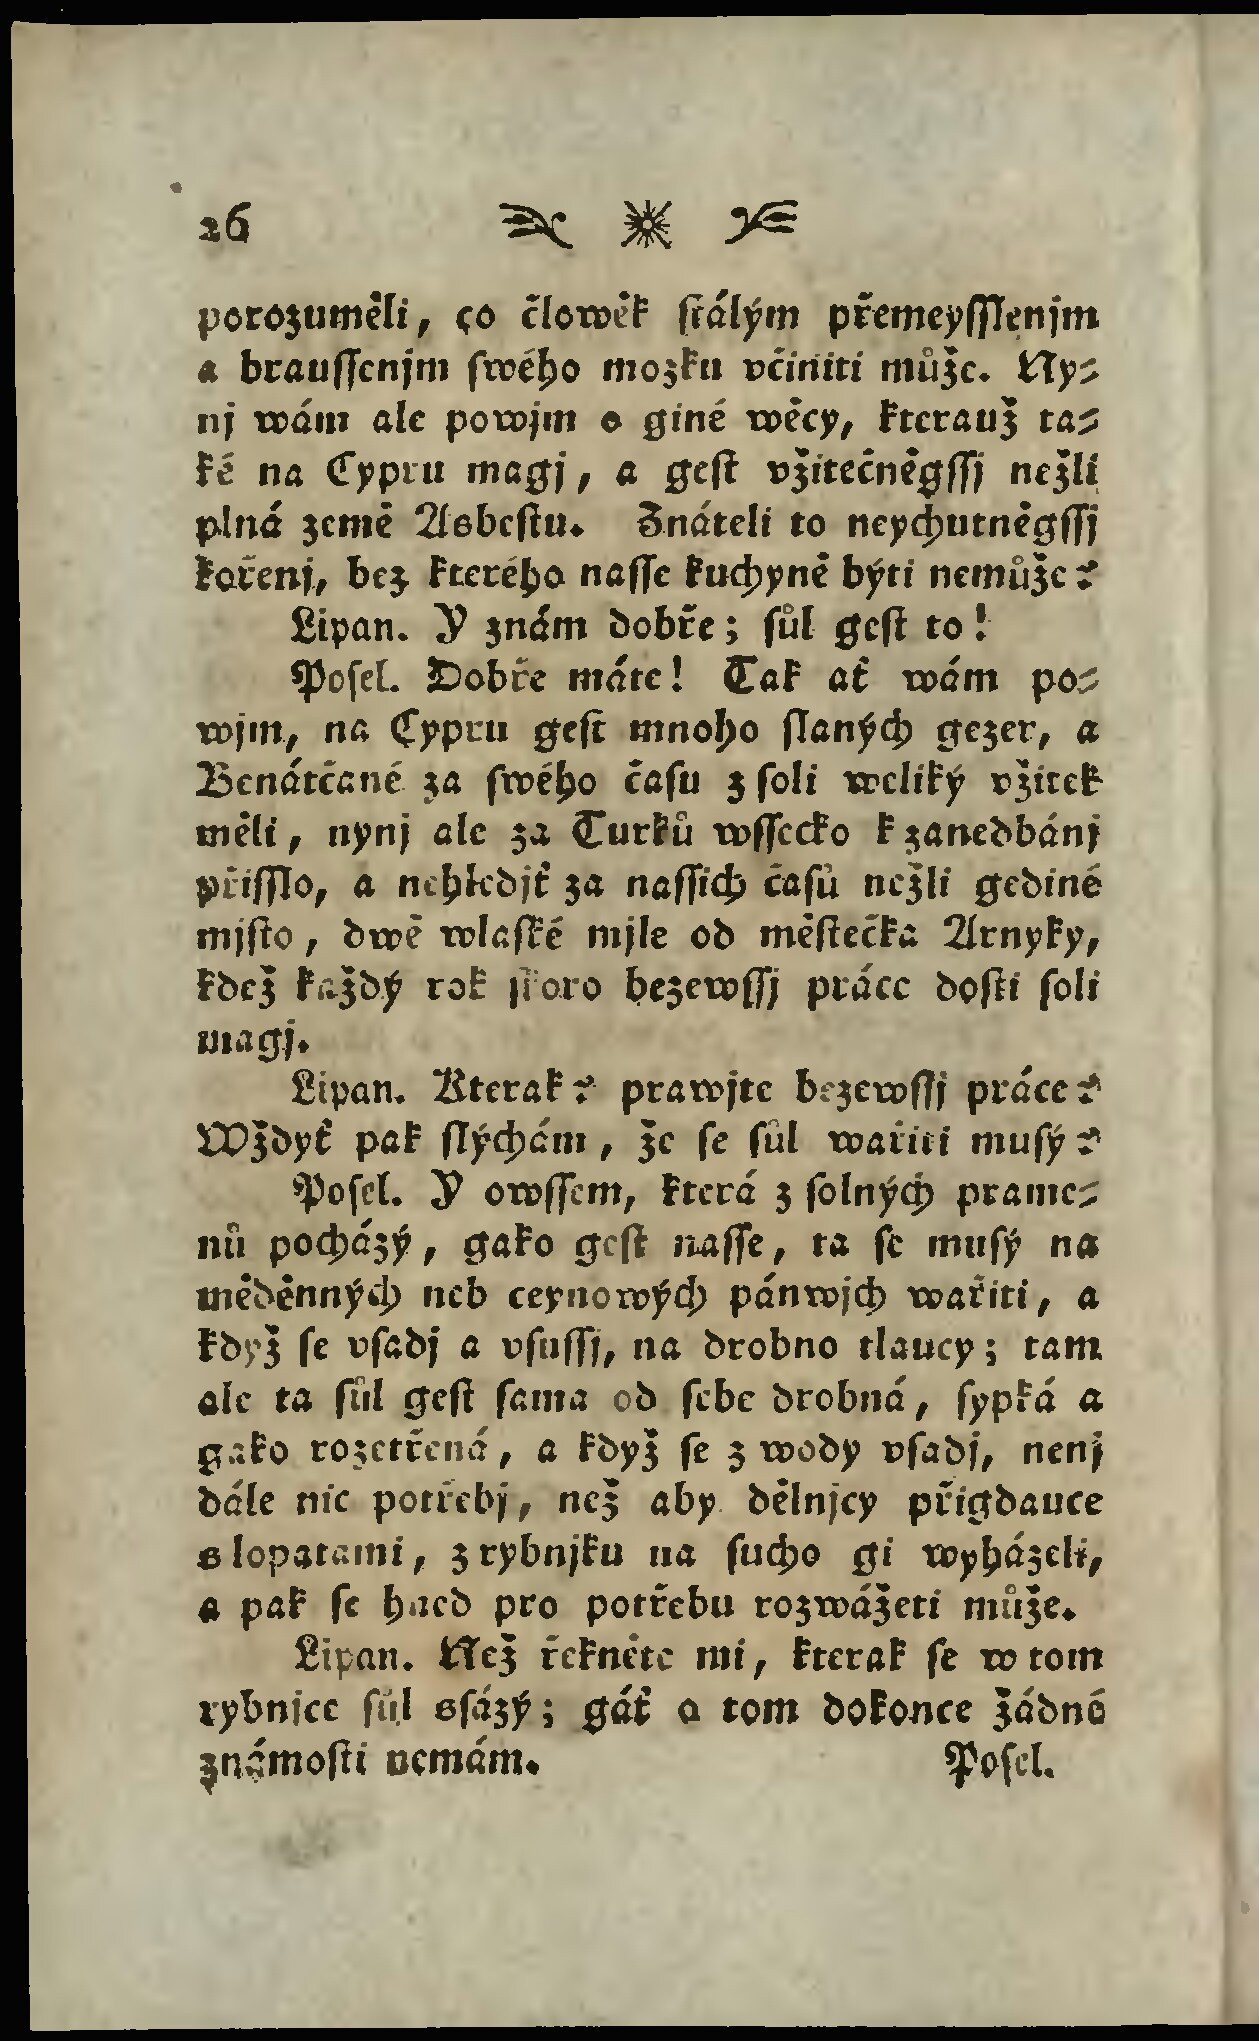 26
porozuměli, co člowěk stálým přemeyſſlenjm
a brauſſenjm ſwého mozku včiniti může. Ny⸗
nj wám ale powjm o giné wěcy, kterauž ta⸗
ké na Cypru magj, a geſt vžitečněgſſj nežli
plná země Asbeſtu. Znáteli to neychutněgſſj
kořenj, bez kterého naſſe kuchyně býti nemůže?
Lipan. Y znám dobře; ſůl geſt to!
Poſel. Dobře máte! Tak ať wám po⸗
wjm, na Cypru geſt mnoho ſlaných gezer, a
Benátčané za ſwého čaſu z ſoli weliký vžitek
měli, nynj ale za Turků wſſecko k zanedbánj
přiſſlo, a nehledjť za naſſich čaſů nežli gediné
mjſto, dwě wlaſké mjle od měſtečka Arnyky,
kdež každý rok ſkoro bezewſſj práce doſti ſoli
magj.
Lipan. Kterak? prawjte bezewſſj práce?
Wždyť pak ſlýchám, že ſe ſůl wařiti muſý?
Poſel. Y owſſem, která z ſolných prame⸗
nů pocházý, gako geſt naſſe, ta ſe muſý na
měděnných neb ceynowých pánwjch wařiti, a
když ſe vſadj a vſuſſj, na drobno tlaucy; tam
ale ta ſůl geſt ſama od ſebe drobná, ſypká a
gako rozetřená, a když ſe z wody vſadj, nenj
dále nic potřebj, než aby dělnjcy přigdauce
s lopatami, z rybnjku na ſucho gi wyházeli,
a pak ſe hned pro potřebu rozwážeti může.
Lipan. Než řekněte mi, kterak ſe w tom
rybnjce ſůl sſázý; gáť o tom dokonce žádné
známoſti nemám.
Poſel.